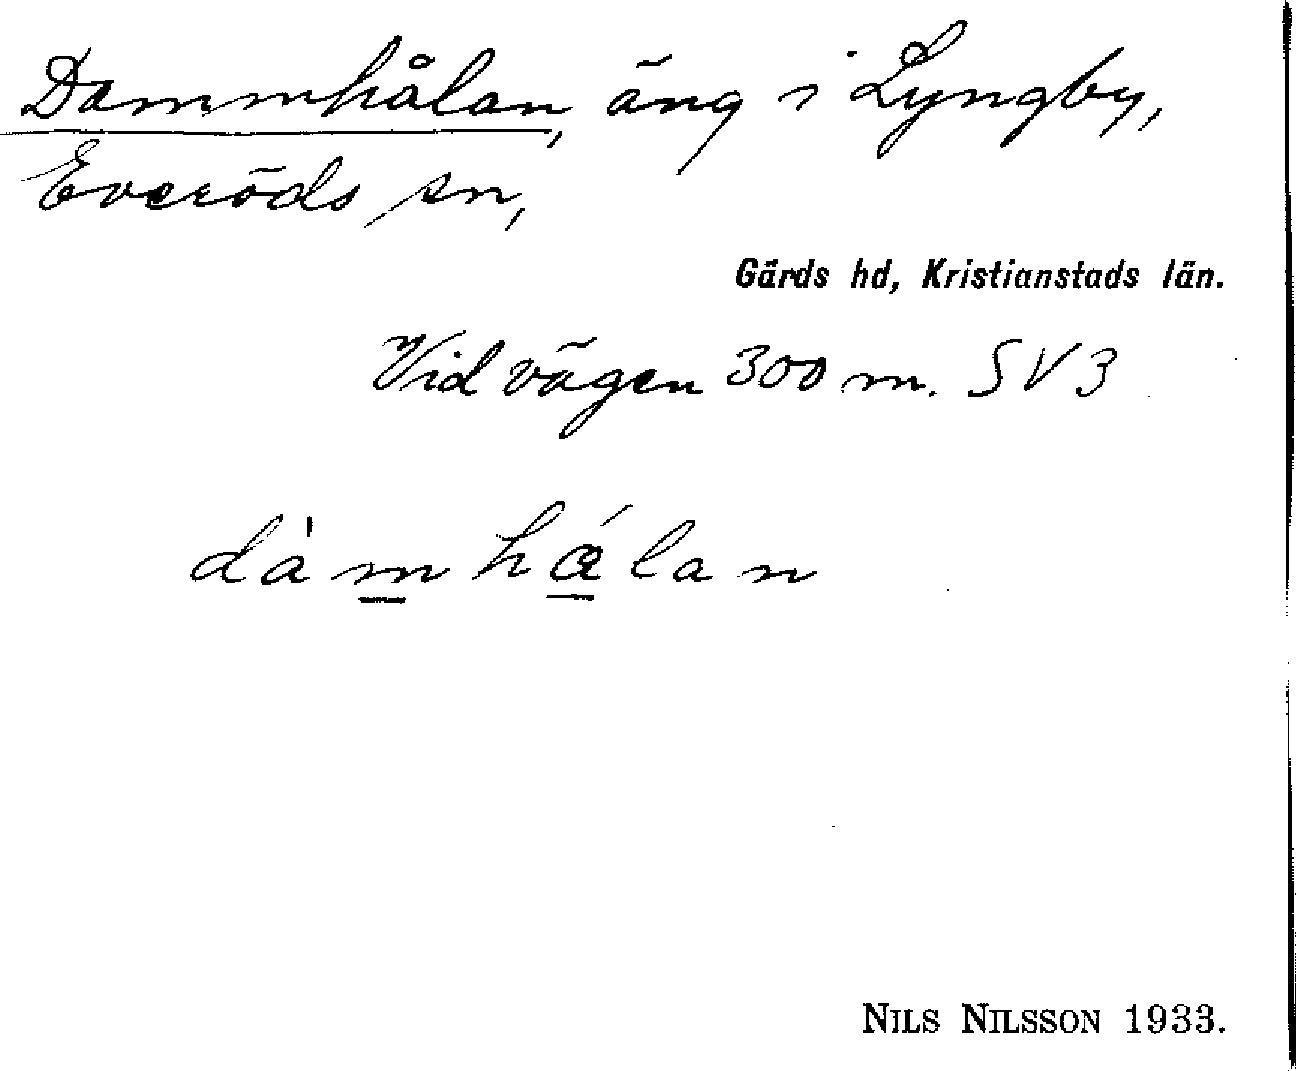 Dammhålan, äng i Lyngby,
Everöds sn,
Gärds hd, Kristianstads län.
Vid vägen 300 m. SV 3
dàmhálan
NILS NILSSON 1933.